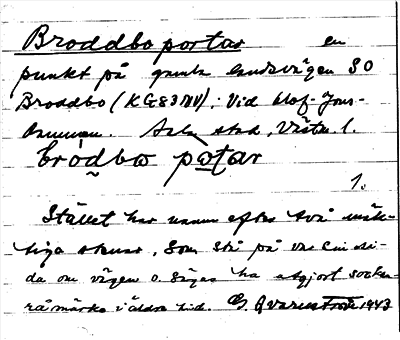 Broddbo portar en
punkt på gamla landsvägen SO
Broddbo (KG83NV), vid Olof-Jons-
Asby stad, Västm. l.
bròdbω pǫtar
1.
Stället har namn efter två mäk-
tiga stenar, som stå på var sin si-
da om vägen o. säges ha utgjort socken-
råmärke i äldre tid. G. Qvarnström 1943